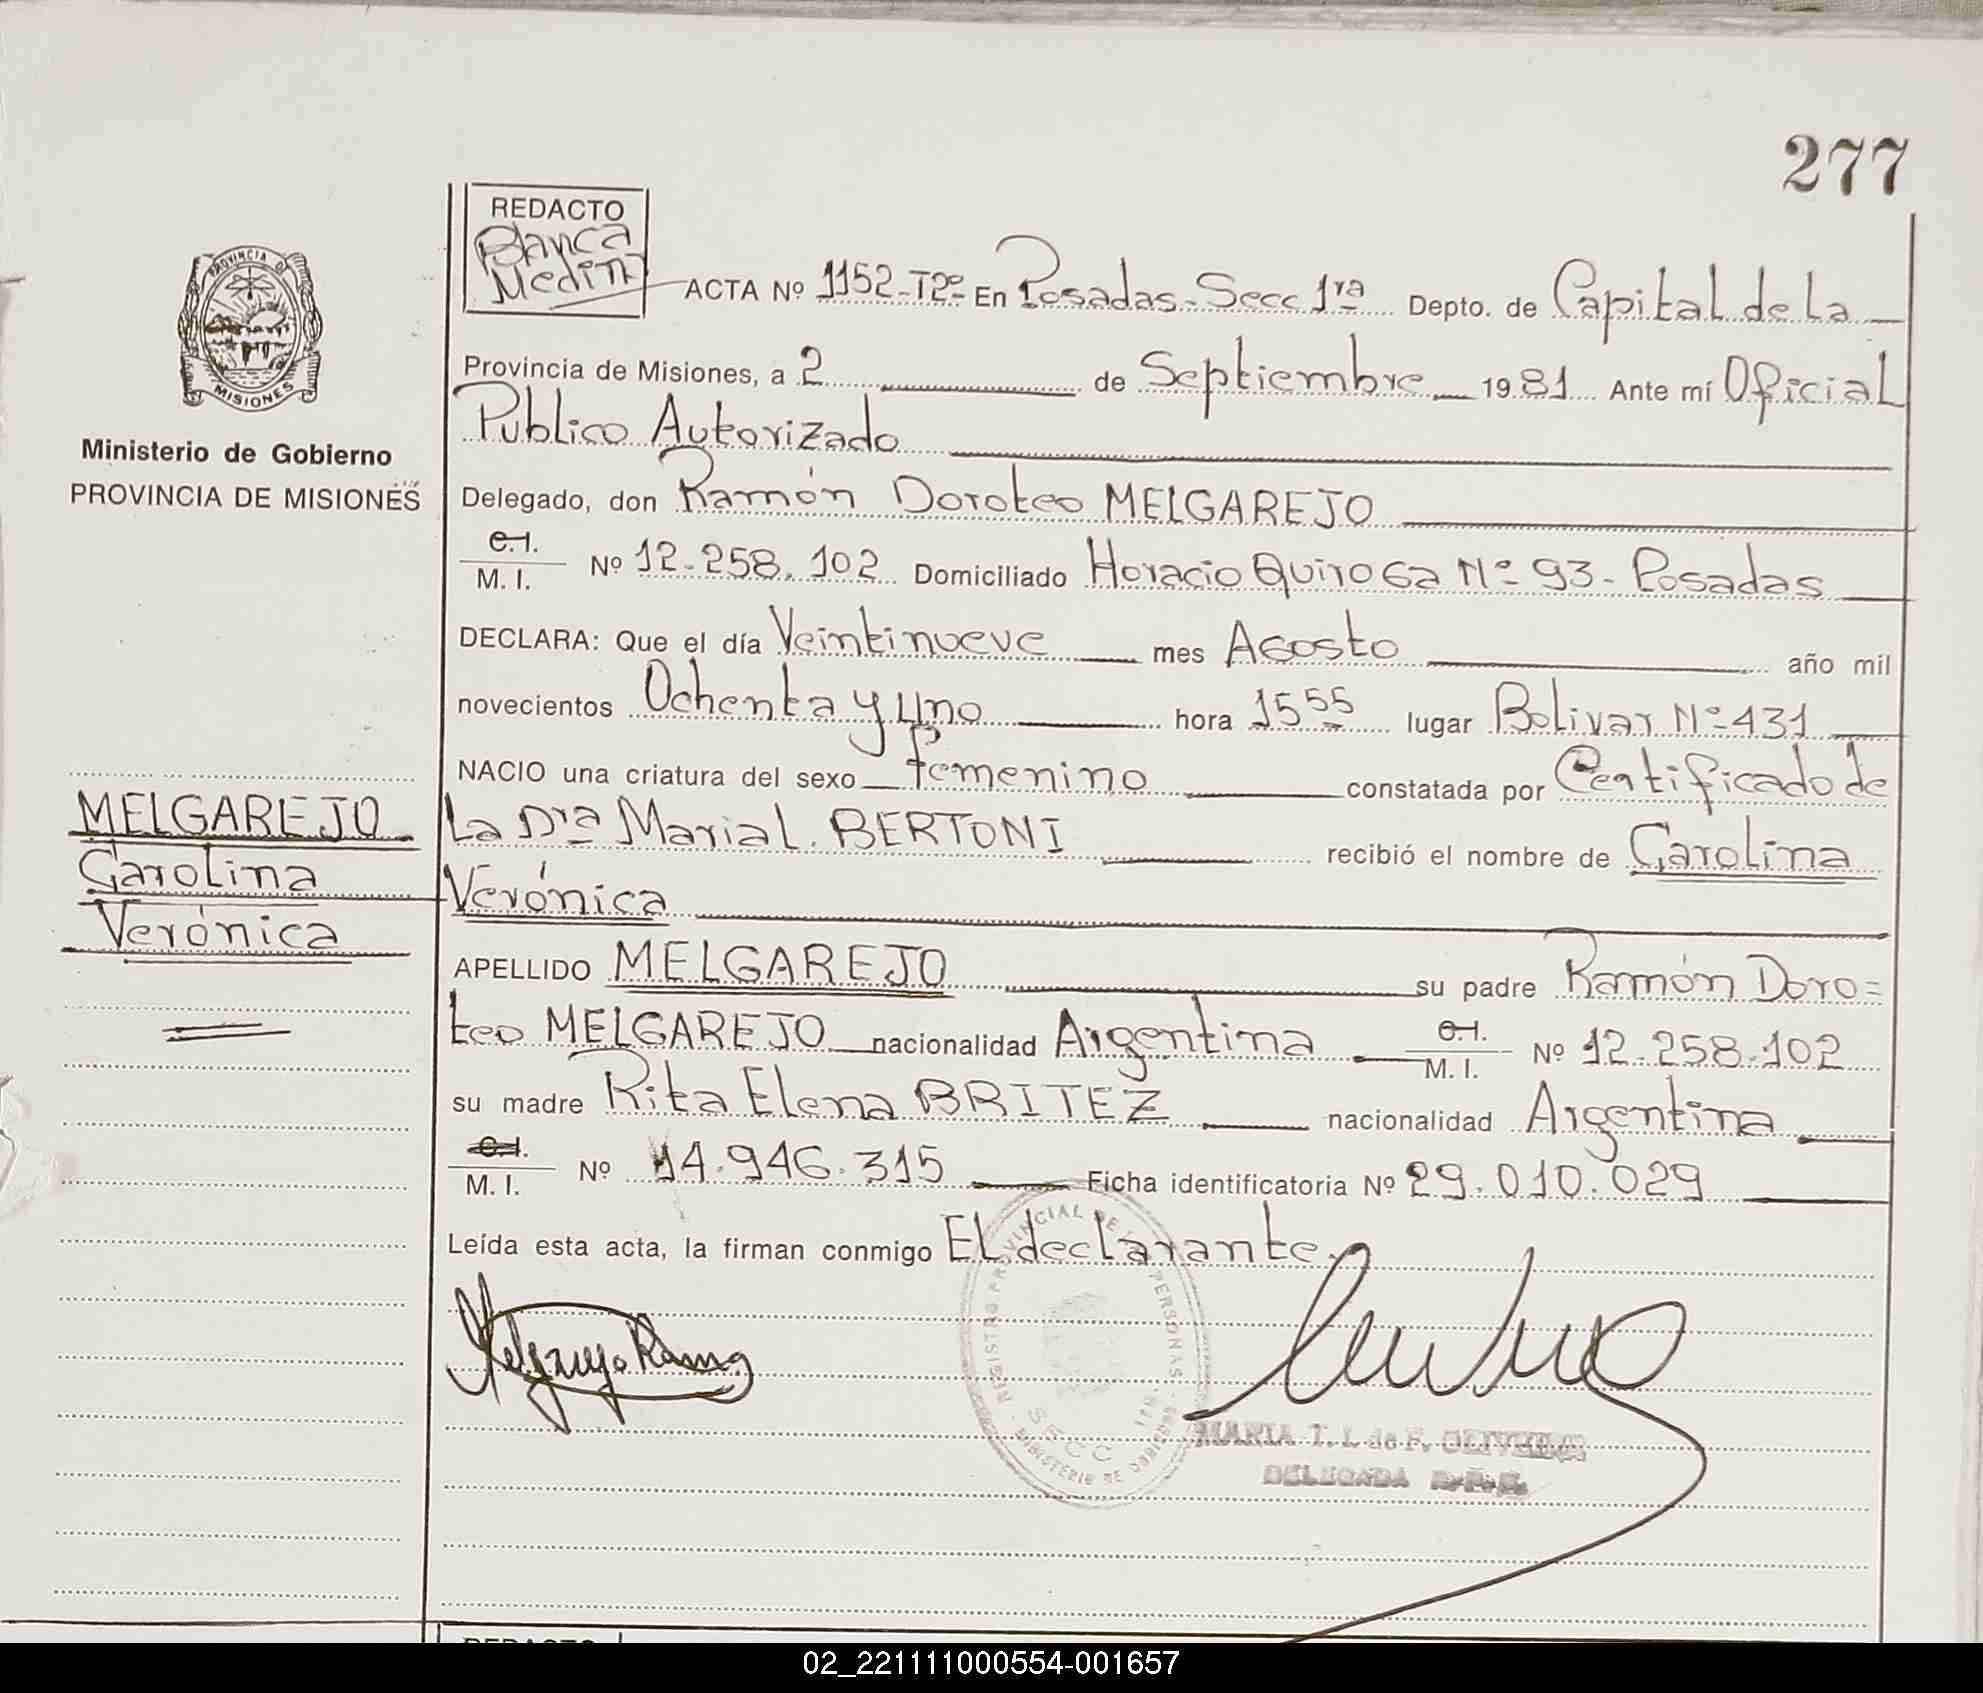 277
REDACTO
Blanca
Medina
ACTA Nº 1152-Tº2º En Posadas-Secc 1ra Depto. de Capital de La
Provincia de Misiones, a 2 de Septiembre 1981 Ante mí Oficial
Publico Autorizado
Delegado, don Ramón Doroteo MELGAREJO
C.I.
M. I. Nº 12.258.102 Domiciliado Horacio Quiroga Nº 93-Posadas
DECLARA: Que el día Veintinueve mes Agosto año mil
novecientos Ochenta y Uno hora 15 55 lugar Bolivar Nº 431
NACIO una criatura del sexo femenino constatada por Certificado de
La Dra Maria L. BERTONI recibió el nombre de Carolina
Verónica
APELLIDO MELGAREJO su padre Ramón Doro=
teo MELGAREJO nacionalidad Argentina C.I.
M. I. Nº 12.258.102
su madre Rita Elena BRITEZ nacionalidad Argentina
C.I.
M. I. Nº 14.946.315 Ficha identificatoria Nº 29.010.029
Leída esta acta, la firman conmigo El declarante.
Melgarejo Ramon
PROVINCIA DE
MISIONES
Ministerio de Gobierno
PROVINCIA DE MISIONES
MELGAREJO
Carolina
Verónica
REGISTRO PROVINCIAL DE PERSONAS
SECC
MINISTERIO DE GOBIERNO
MARIA T. I. de F. OLIVEIRA
DELEGADA R.P.P.
REDACTO
02_221111000554-001657